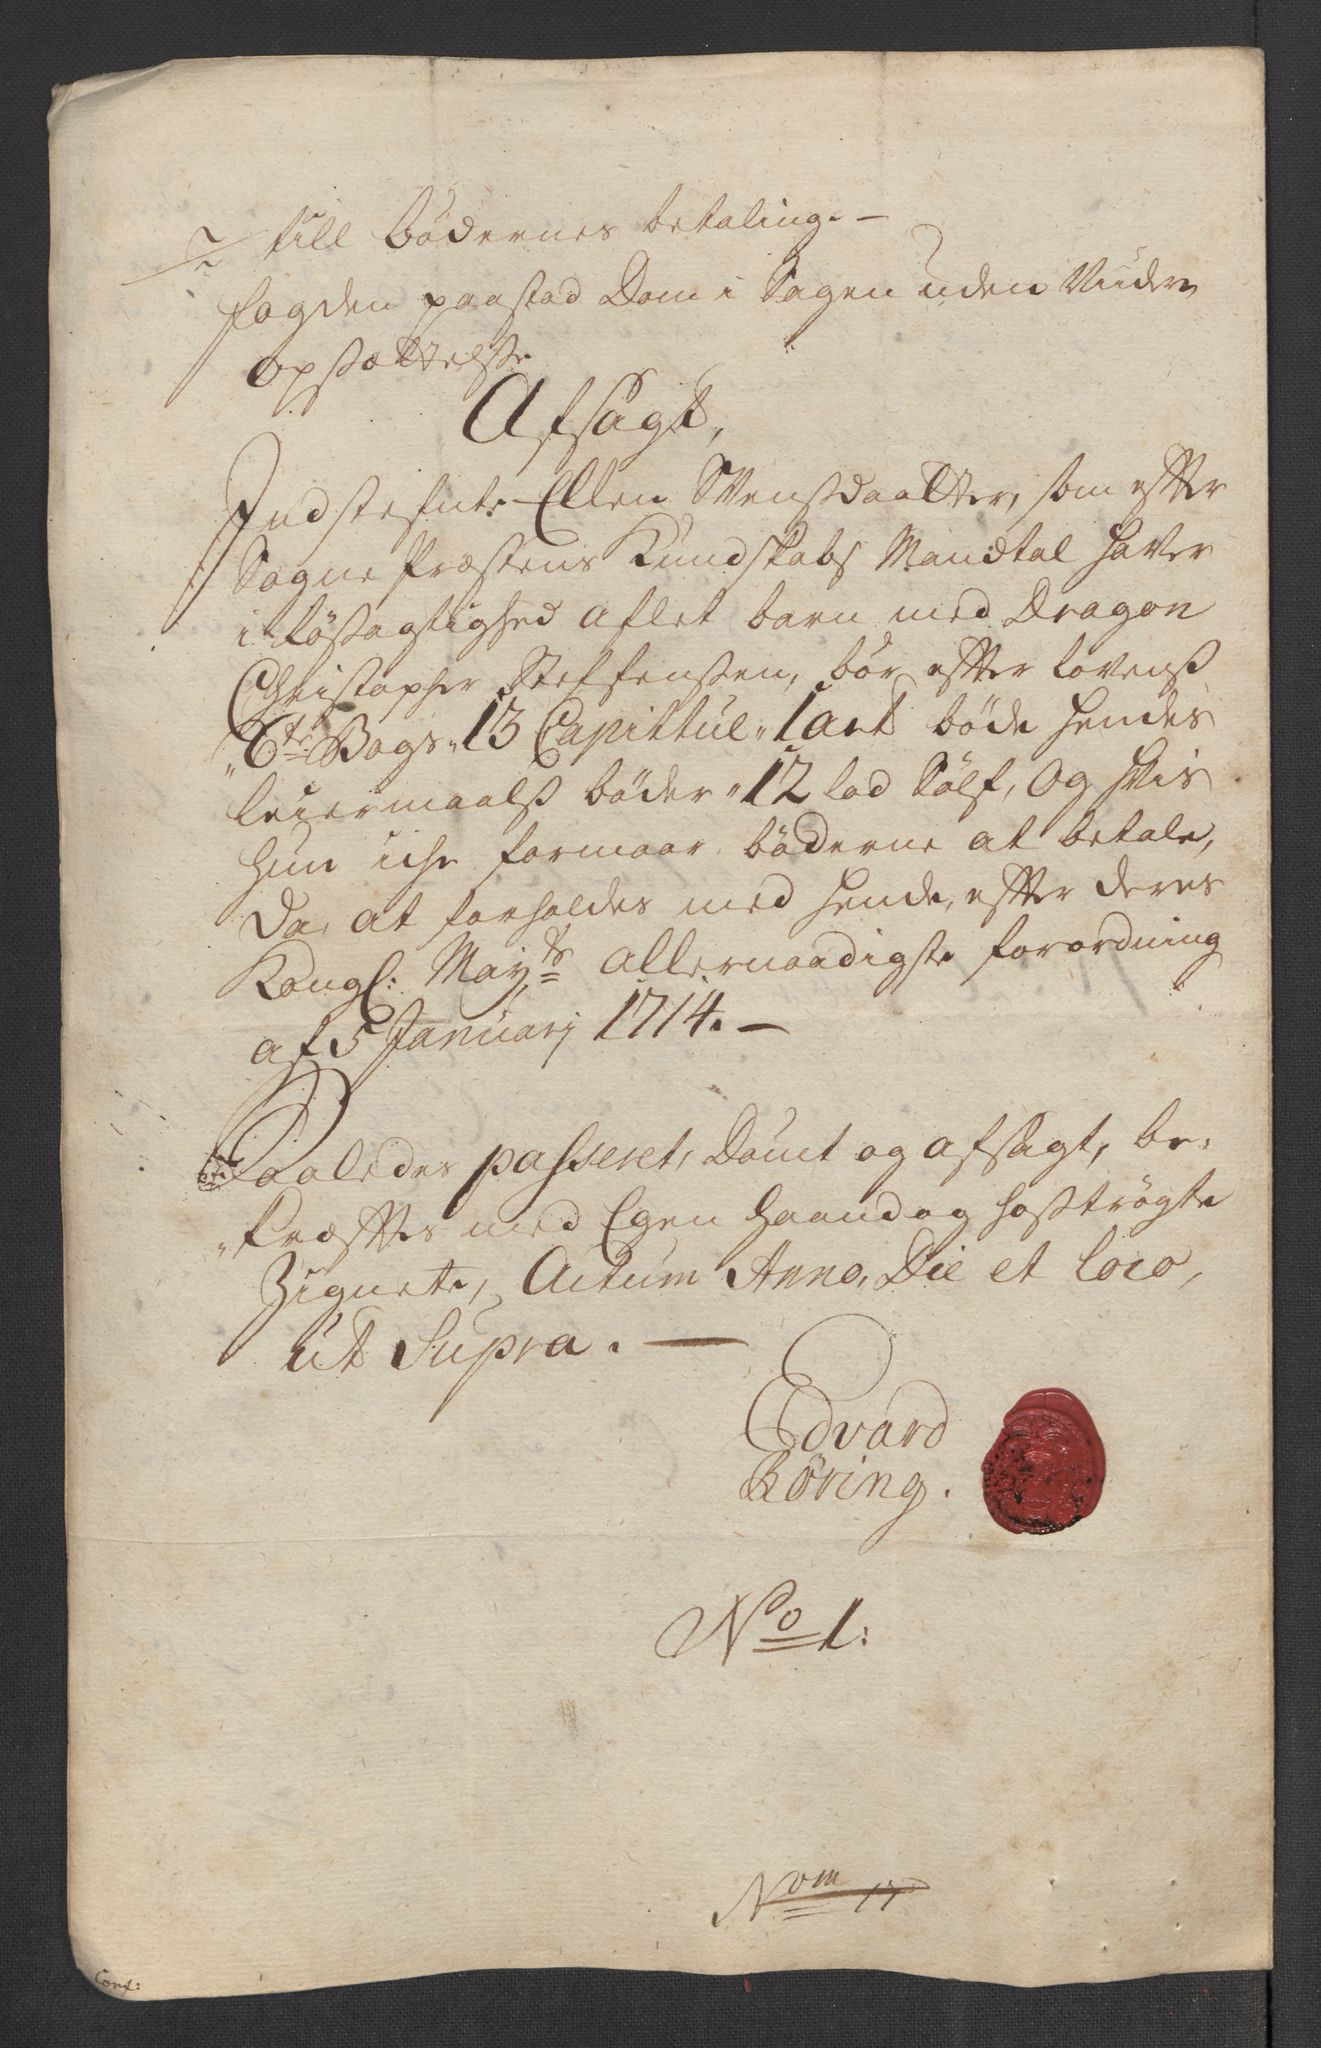 till bödernes betaling. —
fogden paastod Dom i Sagen uden Viider
opsættelse
Afsagt,
Indstefnte Ellen Svensdaatter, som efter
Sogne Præstens Kundskabs Mandtal haver
i løsagtighed aflet barn med Dragon
Christopher Steffensen, bör efter lovens
6te Bogs 13 Capittul 1 art böde hendes
leiermaals böder 12 lod Sölf, og hvis
hun iche formaar böderne at betale,
Da at forholdes med hende, efter deres
Kongl: Mayts allernaadigste forordning
af 5 Januarj 1714. —
Saaledes passeret, Dömt og afsagt, be-
kræfftes med Egen haand og hoströgte
Zignete, Actum Anno, Die et loco,
ut Supra. —
Edvard
Röring.
No 1:
Nom 17
Conf: